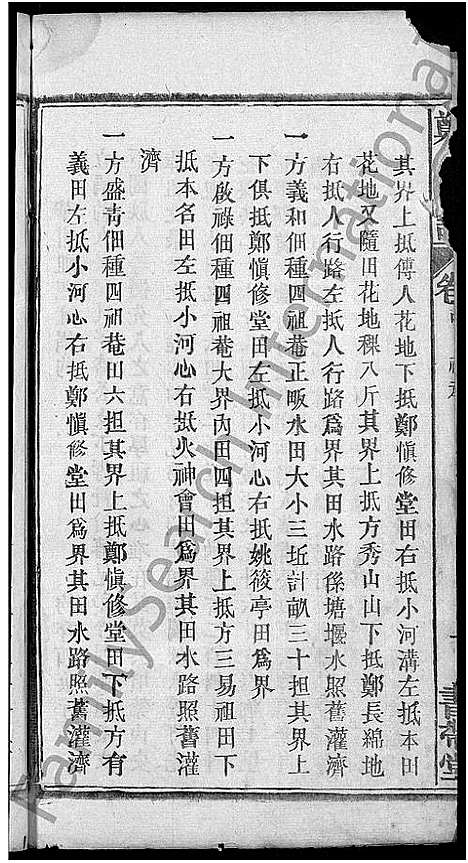 其界上抵傅人花地下抵鄭愼修堂田右抵小河溝左抵本田
花地又隨田花地稞八斤其界上抵方秀山山下抵鄭長綿地
右抵人行路左抵人行路爲界其田水路係塘堰水照舊灌濟
一方義和佃種四祖菴正畈水田大小三坵計畝三十担其界上
下俱抵鄭愼修堂田左抵小河心右抵姚筱亭田爲界
一方啟祿佃種四祖菴大界內田四担其界上抵方三易祖田下
抵本名田左抵小河心右抵火神會田爲界其田水路照舊灌
濟
一方盛靑佃種四祖菴田六担其界上抵鄭愼修堂田下抵方有
義田左抵小河心右抵鄭愼修堂田爲界其田水路照舊灌濟
鄭
卷
書帶堂
FamilySearch International